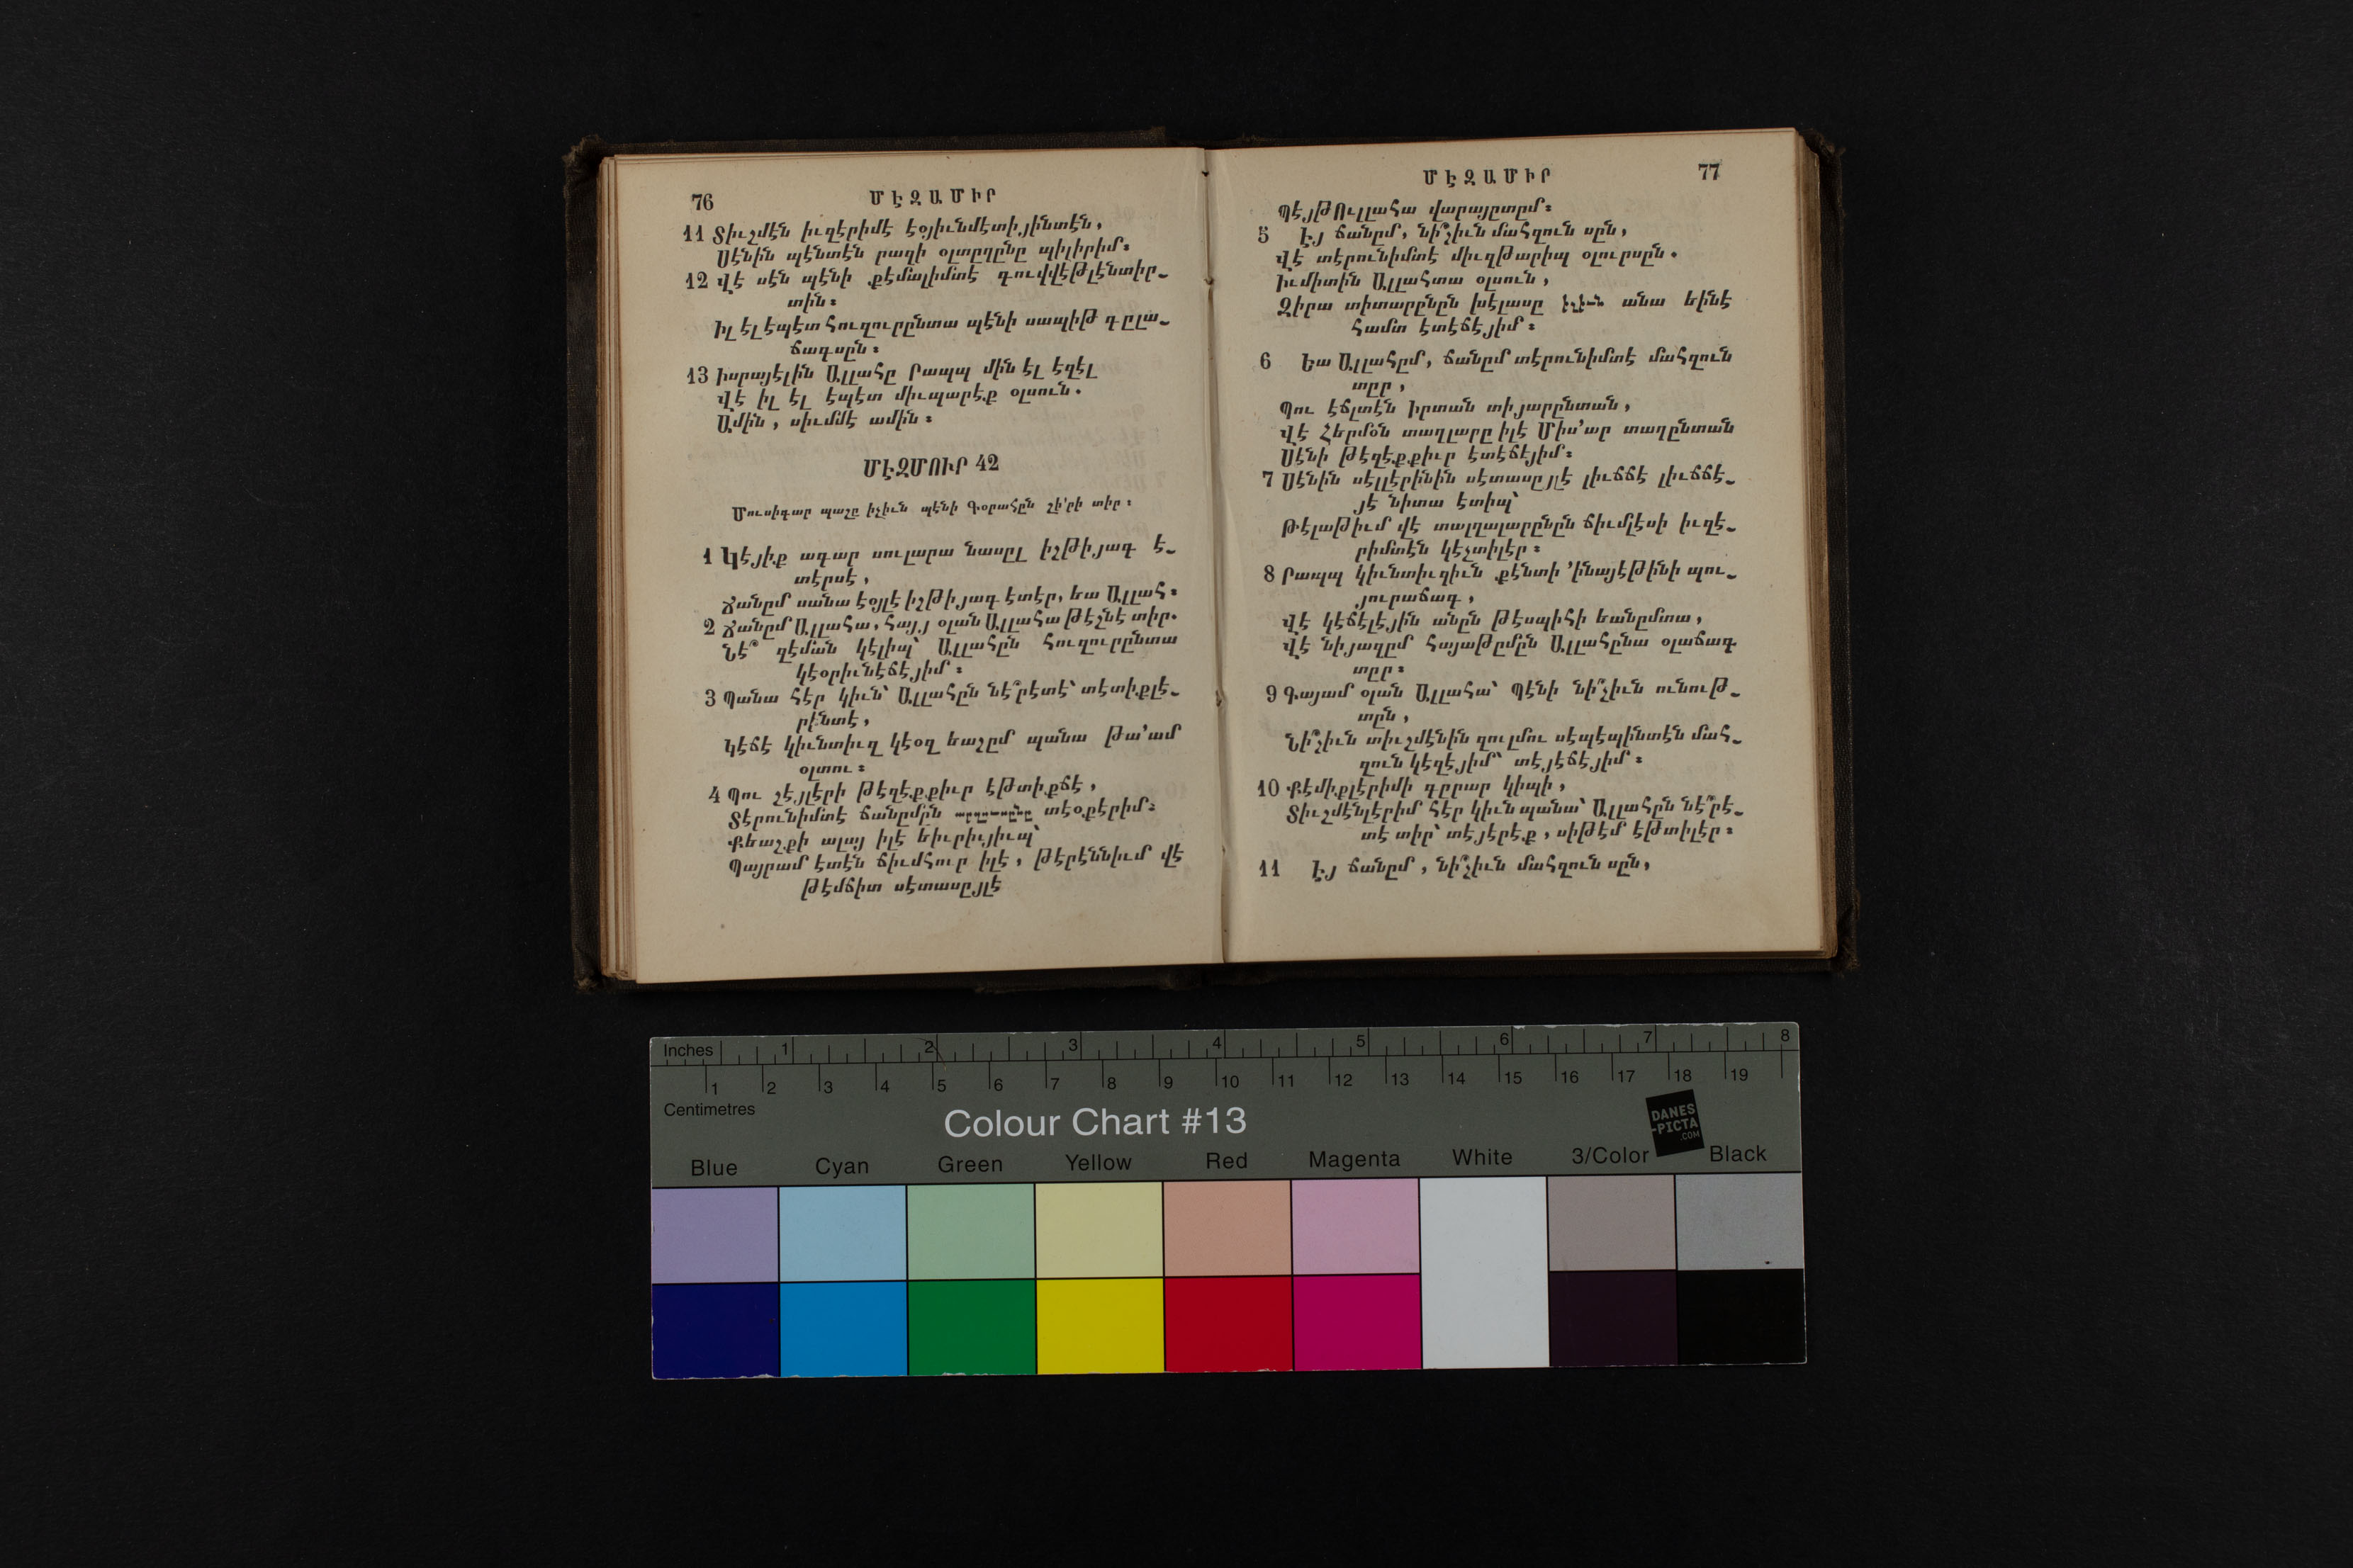 76
ՄԷԶԱՄԻՐ
11 Տիւշմէն իւզէրիմէ էօյիւնմէտիյինտէն,
Սէնին պէնտէն րազի օլտըղընը պիլիրիմ։
12 Վէ սէն պէնի քէմալիմտէ գուվվէթլէնտիր֊
տին։
Իլ էլ էպէտ հուզուրընտա պէնի սապիթ գըլա֊
ճագսըն։
13 Իսրայէլին Ալլահը Րապպ մին էլ էզէլ
Վէ իլ էլ էպէտ միւպարէք օլսուն.
Ամին, սիւմմէ ամին։
ՄԷԶՄՈՒՐ 42
Մուսիգար պաշը իչիւն պէնի Գօրահըն շի՛րի տիր։
1 Կէյիք ագար սուլարա նասըլ իշթիյագ է֊
տէրսէ,
Ճանըմ սանա էօյլէ իշթիյագ էտէր, եա Ալլահ։
2 Ճանըմ Ալլահա, հայյ օլան Ալլահա թէշնէ տիր.
Նէ՞ զէման կէլիպ՝ Ալլահըն հուզուրընտա
կէօրիւնէճէյիմ։
3 Պանա հէր կիւն՝ Ալլահըն նէ՞րէտէ՝ տէտիքլէ֊
րընտէ,
Կէճէ կիւնտիւզ կէօզ եաշըմ պանա թա՛ամ
օլտու։
4 Պու շէյլէրի թէզէքքիւր էթտիքճէ,
Տէրունիմտէ ճանըմըն արզուսընը տէօքէրիմ։
Քեաշքի ալայ իլէ եիւրիւյիւպ՝
Պայրամ էտէն ճիւմհուր իլէ, թէրէննիւմ վէ
թէմճիտ սէտասըյլէ
ՄԷԶԱՄԻՐ
77
ՊէյթՈւլլահա վարայըտըմ։
5 Էյ ճանըմ, նի՞չիւն մահզուն սըն,
Վէ տէրունիմտէ միւզթարիպ օլուրսըն.
Իւմիտին Ալլահտա օլսուն,
Զիրա տիտարընըն խէլասը իչիւն անա եինէ
համտ էտէճէյիմ։
6 Եա Ալլահըմ, ճանըմ տէրունիմտէ մահզուն
տըր,
Պու էճլտէն Իրտան տիյարընտան,
Վէ Հերմօն տաղլարը իլէ Միս՛ար տաղընտան
Սէնի թէզէքքիւր էտէճէյիմ։
7 Սէնին սէլլէրինին սէտասըյլէ լիւճճէ լիւճճէ֊
յէ նիտա էտիպ՝
Թէլաթիւմ վէ տալղալարընըն ճիւմլէսի իւզէ֊
րիմտէն կէչտիլէր։
8 Րապպ կիւնտիւզիւն քէնտի ՛ինայէթինի պու֊
յուրաճագ,
Վէ կէճէլէյին անըն թէսպիհի եանըմտա,
Վէ նիյազըմ հայաթըմըն Ալլահընա օլաճագ
տըր։
9 Գայամ օլան Ալլահա՝ Պէնի նի՞չիւն ունութ֊
տըն,
Նի՞չիւն տիւշմէնին զուլմու սէպէպինտէն մահ֊
զուն կէզէյիմ՝ տէյէճէյիմ։
10 Քէմիքլէրիմի գըրար կիպի,
Տիւշմէնլէրիմ հէր կիւն պանա՝ Ալլահըն նէ՞րէ֊
տէ տիր՝ տէյէրէք, սիթէմ էթտիլէր։
11 Էյ ճանըմ, նի՞չիւն մահզուն սըն,
Inches 1 2 3 4 5 6 7 8
1 2 3 4 5 6 7 8 9 10 11 12 13 14 15 16 17 18 19
Centimetres
Colour Chart #13
DANES
-PICTA
.COM
Blue Cyan Green Yellow Red Magenta White 3/Color Black